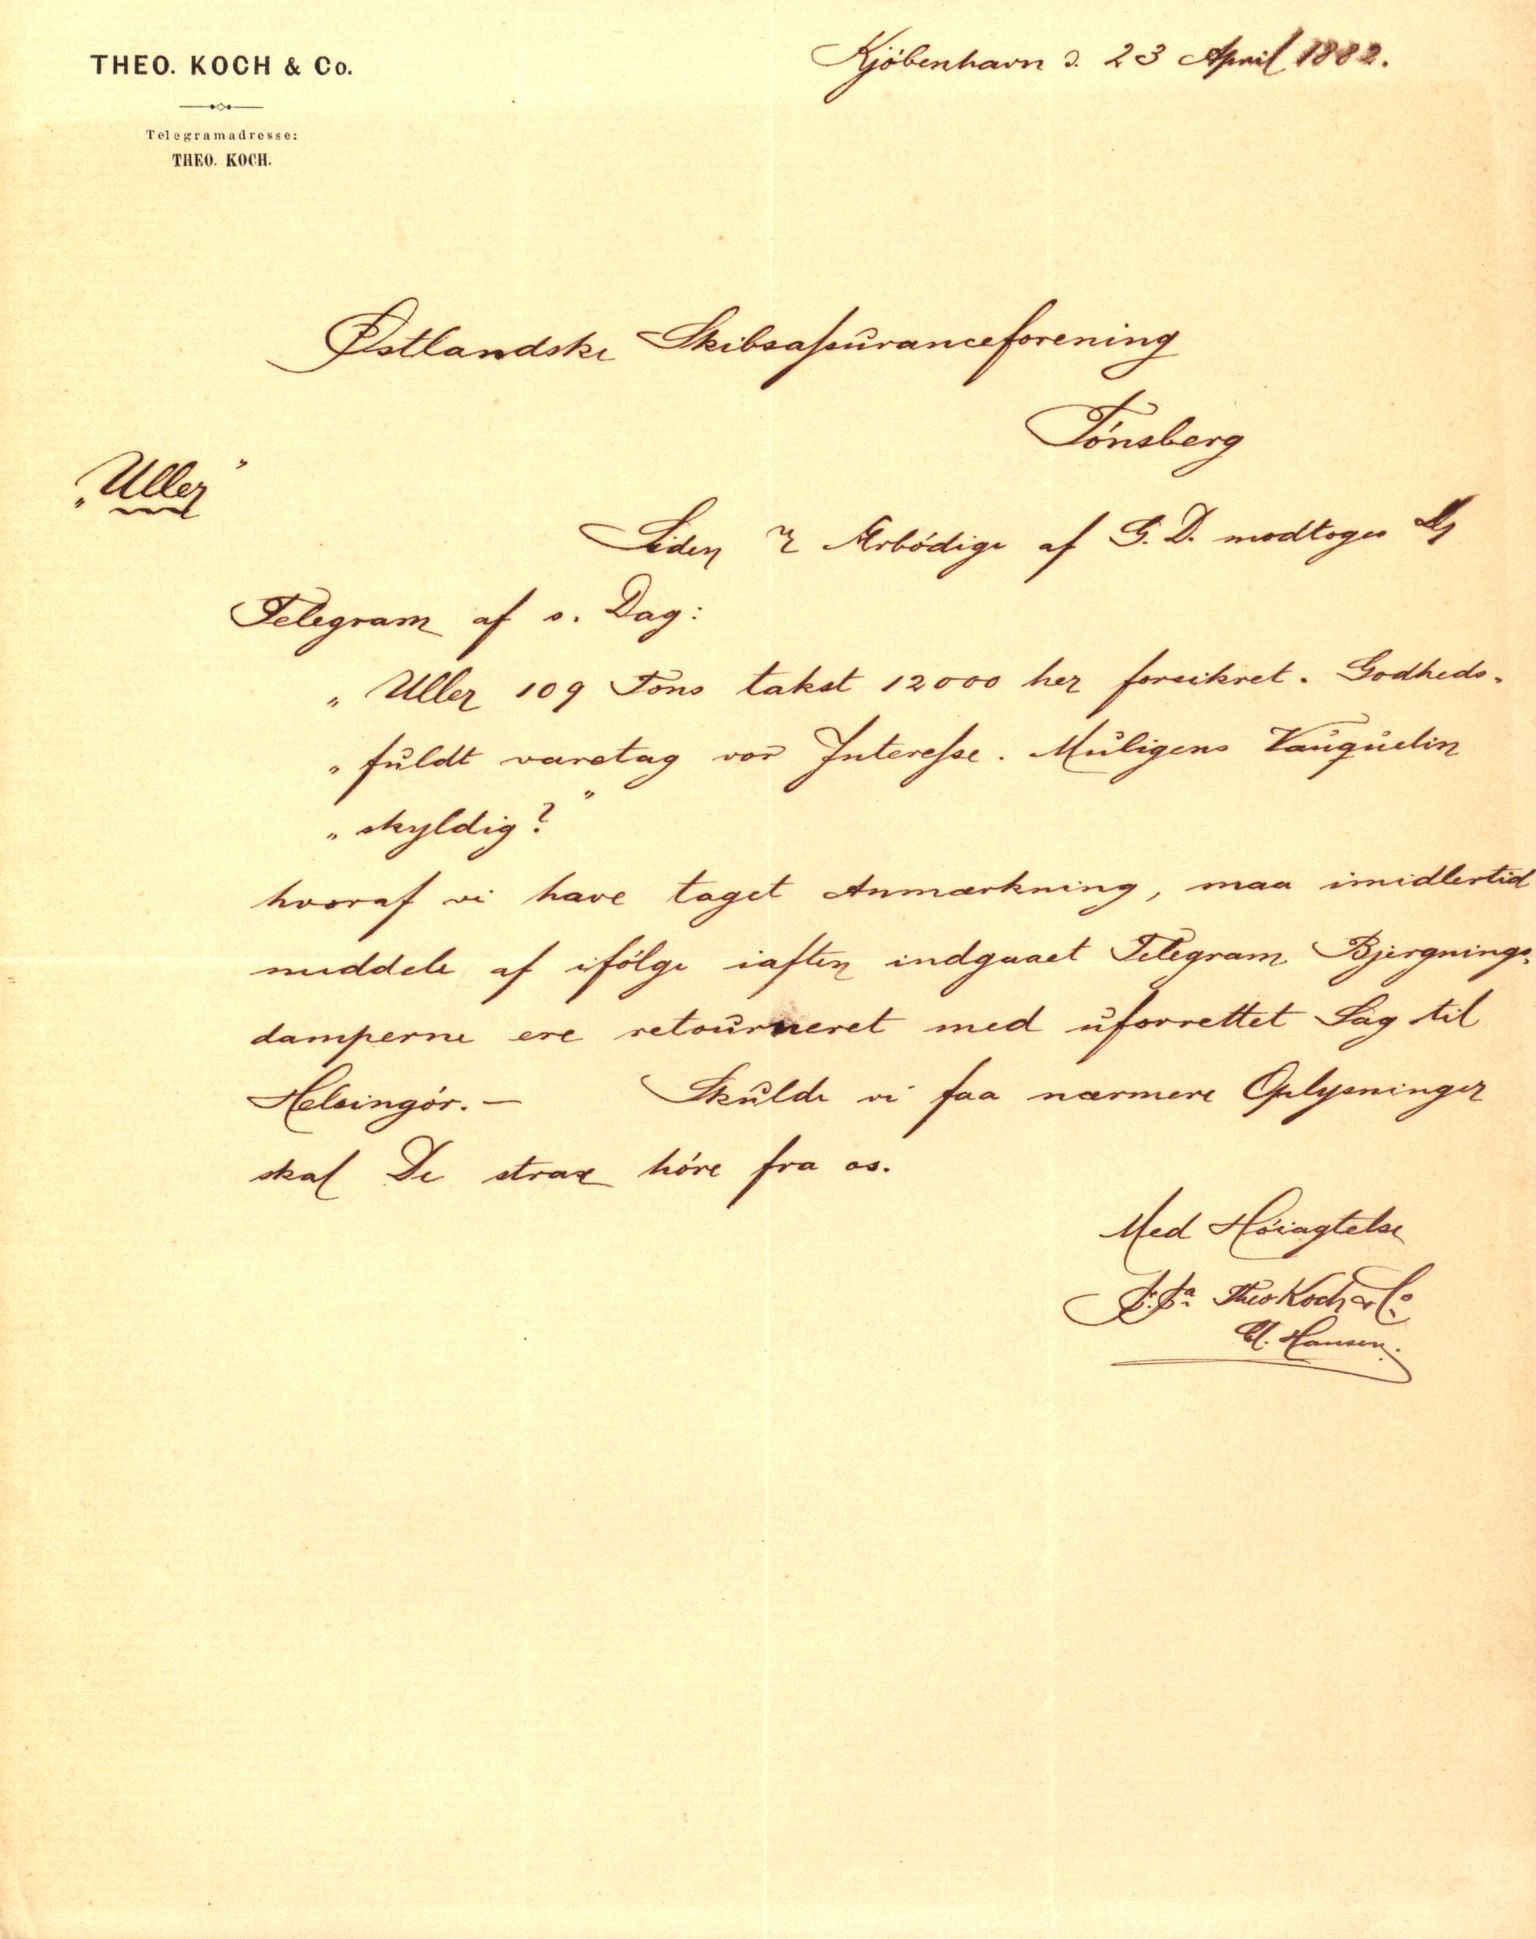 THEO. KOCH & Co.
Telegramadresse:
THEO. KOCH.
Kjöbenhavn d. 23 April 1882.
Østlandske Skibsassuranceforening
Tönsberg
"Uller"
Siden Ærbödige af G. D. modtoges
Telegram af s. Dag:
" Uller 109 Tons takst 12000 her forsikret. Godheds-
" fuldt varetag vor Interesse. Muligens Vauquelin
" skyldig?"
hvoraf vi have taget Anmærkning, maa imidlertid
meddele af ifölge iaften indgaaet Telegram Bjergnings-
damperne ere retourneret med uforrettet Sag til
Helsingör. — Skulde vi faa nærmere Oplysninger
skal De strax höre fra os.
Med Höiagtelse
Theo Koch & Co
Hansen.